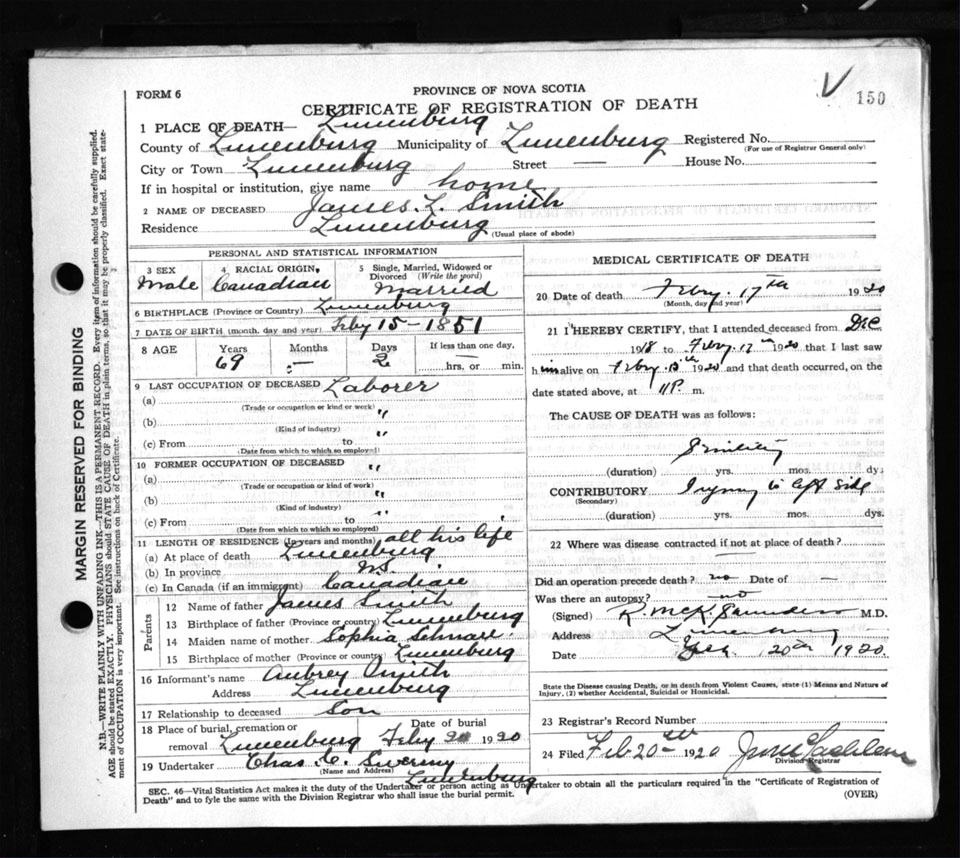 FORM 6
PROVINCE OF NOVA SCOTIA
CERTIFICATE OF REGISTRATION OF DEATH
150
1 PLACE OF DEATH— Lunenburg
County of Lunenburg Municipality of Lunenburg Registered No.
(For use of Registrar General only)
City or Town Lunenburg Street — House No.
If in hospital or institution, give name home
2 NAME OF DECEASED James. L. Smith
Residence Lunenburg (Usual place of abode)
PERSONAL AND STATISTICAL INFORMATION
3 SEX 4 RACIAL ORIGIN, 5 Single, Married, Widowed or Divorced (Write the word)
Male Canadian Married
6 BIRTHPLACE (Province or Country) Lunenburg
7 DATE OF BIRTH (month, day and year) Feby 15 - 1851
8 AGE Years Months Days If less than one day,
69 — 2 hrs, or min.
9 LAST OCCUPATION OF DECEASED Laborer
(a)
(Trade or occupation or kind or work) "
(b)
(Kind of industry) "
(c) From to
(Date from which to which so employed)
10 FORMER OCCUPATION OF DECEASED "
(a)
(Trade or occupation or kind of work) "
(b)
(Kind of industry) "
(c) From to
(Date from which to which so employed)
11 LENGTH OF RESIDENCE (In years and months) all his life
(a) At place of death Lunenburg
(b) In province N.S.
(c) In Canada (if an immigrant) Canadian
Parents
12 Name of father James Smith
13 Birthplace of father (Province or country) Lunenburg
14 Maiden name of mother Sophia Schnare
15 Birthplace of mother (Province or country) Lunenburg
16 Informant's name Aubrey Smith
Address Lunenburg
17 Relationship to deceased Son
18 Place of burial, cremation or removal Lunenburg Date of burial Feby 20 1920
19 Undertaker Chas. C.
(Name and Address) Lunenburg
MEDICAL CERTIFICATE OF DEATH
20 Date of death Feby. 17th 1920
(Month, day and year)
21 I HEREBY CERTIFY, that I attended deceased from Dec
1918 to Feby. 17th 1920 that I last saw
him alive on Feby. 1920 and that death occurred, on the
date stated above, at 11 P. m.
The CAUSE OF DEATH was as follows:
Senility
(duration) yrs. mos. dys
CONTRIBUTORY Injury to left side
(Secondary)
(duration) yrs. mos. dys.
22 Where was disease contracted if not at place of death? —
Did an operation precede death? no Date of —
Was there an autopsy? no
(Signed) R. McK. Saunders M.D.
Address Lunenburg
Date 20th 1920
State the Disease causing Death, or in death from Violent Causes, state (1) Means and Nature of
Injury, (2) whether Accidental, Suicidal or Homicidal.
23 Registrar's Record Number
24 Filed Feb 20th 1920
Division Registrar
SEC. 46—Vital Statistics Act makes it the duty of the Undertaker or person acting as Undertaker to obtain all the particulars required in the "Certificate of Registration of
Death" and to fyle the same with the Division Registrar who shall issue the burial permit. (OVER)
MARGIN RESERVED FOR BINDING
N.B.—WRITE PLAINLY WITH UNFADING INK—THIS IS A PERMANENT RECORD. Every item of information should be carefully supplied.
AGE should be stated EXACTLY. PHYSICIANS should STATE CAUSE OF DEATH in plain terms, so that it may be properly classified. Exact state-
ment of OCCUPATION is very important. See instructions on back of Certificate.